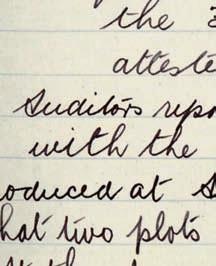 the
atteste
Auditors repo
with the
oduced at
hat two plots